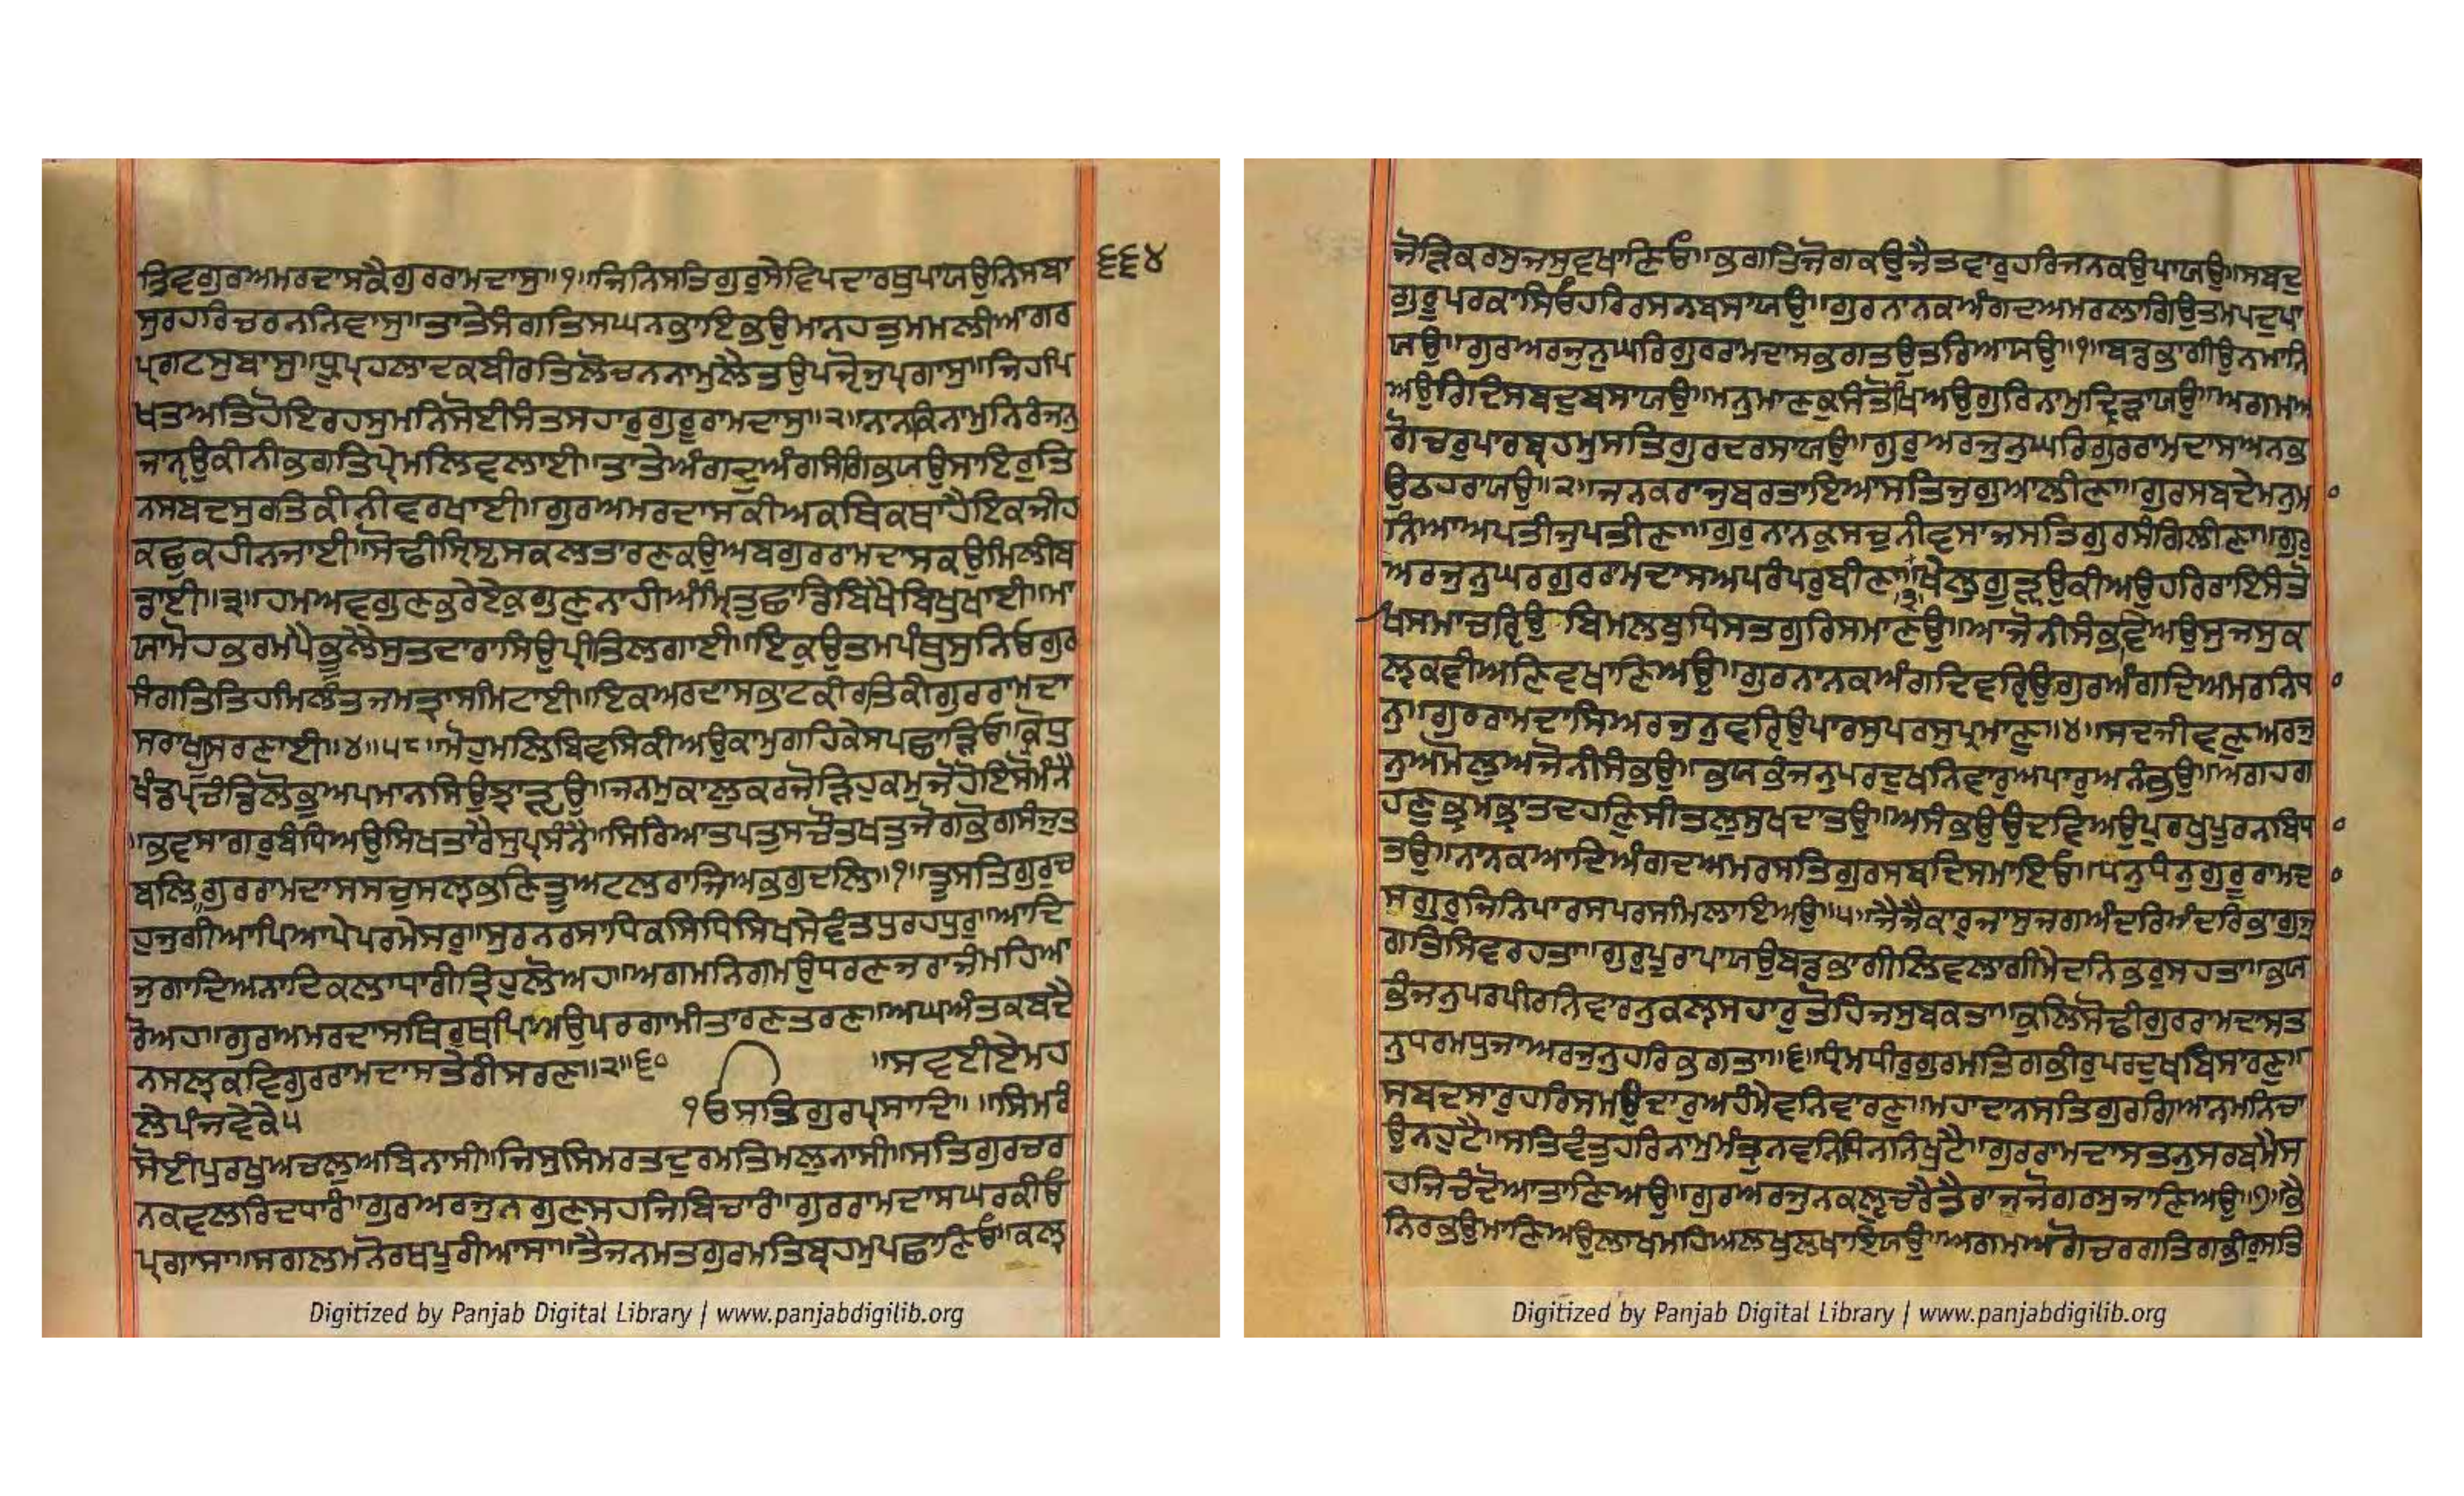 ਤ੍ਰਿਵਗੁਰਅਮਰਦਾਸਕੈਗੁਰਰਾਮਦਾਸੁ॥੧॥ਜਿਨਿਸਤਿਗੁਰੁਸੇਵਿਪਦਾਰਥੁਪਾਯਉਨਿਸਬਾ
੬੬੪
ਸੁਰਹਰਿਚਰਨਨਿਵਾਸੁ॥ਤਾਤੇਸੰਗਤਿਸਘਨਭਾਇਭਉਮਾਨਹਤੁਮਮਲੀਆਗਰ
ਪ੍ਰਗਟਸੁਬਾਸੁ॥ਧ੍ਰੂਪ੍ਰਹਲਾਦਕਬੀਰਤਿਲੋਚਨਨਾਮੁਲੈਤਉਪਜੵੋਜੁਪ੍ਰਗਾਸੁ॥ਜਿਹਪਿ
ਖਤਅਤਿਹੋਇਰਹਸੁਮਨਿਸੋਈਸੰਤਸਹਾਰੁਗੁਰੂਰਾਮਦਾਸੁ॥੨॥ਨਾਨਕਿਨਾਮੁਨਿਰੰਜਨੁ
ਜਾਨੵਉਕੀਨੀਭਗਤਿਪ੍ਰੇਮਲਿਵਲਾਈ॥ਤਾਤੇਅੰਗਦੁਅੰਗਸੰਗਿਭਯਉਸਾਇਰੁਤਿ
ਨਸਬਦਸੁਰਤਿਕੀਨੀਵਰਖਾਈ॥ਗੁਰਅਮਰਦਾਸਕੀਅਕਥਕਥਾਹੈਇਕਜੀਹ
ਕਛੁਕਹੀਨਜਾਈ॥ਸੋਢੀਸ੍ਰਿਸ੍ਟਿਸਕਲਤਾਰਣਕਉਅਬਗੁਰਰਾਮਦਾਸਕਉਮਿਲੀਬ
ਡਾਈ॥੩॥ਹਮਅਵਗੁਣਭਰੇਏਕੁਗੁਣੁਨਾਹੀਅੰਮ੍ਰਿਤੁਛਾਡਿਬਿਖੈਬਿਖੁਖਾਈ॥ਮਾ
ਯਾਮੋਹਭਰਮਪੈਭੂਲੇਸੁਤਦਾਰਾਸਿਉਪ੍ਰੀਤਿਲਗਾਈ॥ਇਕੁਉਤਮਪੰਥੁਸੁਨਿਓਗੁਰ
ਸੰਗਤਿਤਿਹਮਿਲੰਤਜਮਤ੍ਰਾਸਮਿਟਾਈ॥ਇਕਅਰਦਾਸਭਾਟਕੀਰਤਿਕੀਗੁਰਰਾਮਦਾ
ਸਰਾਖੁਸਰਣਾਈ॥੪॥੫੮॥ਮੋਹੁਮਲਿਬਿਵਸਿਕੀਅਉਕਾਮੁਗਹਿਕੇਸਪਛਾੜੵਿਓ॥ਕ੍ਰੋਧੁ
ਖੰਡਪ੍ਰਚੰਡਿਲੋਭੁਅਪਮਾਨਸਿਉਝਾੜੵਉ॥ਜਨਮੁਕਾਲੁਕਰਜੋੜਿਹੁਕਮੁਜੋਹੋਇਸੋਮੰਨੈ
॥ਭਵਸਾਗਰੁਬੰਧਿਅਉਸਿਖਤਾਰੈਸੁਪ੍ਰਸੰਨੈ॥ਸਿਰਿਆਤਪਤੁਸਚੌਤਖਤੁਜੋਗਭੋਗਸੰਜੁਤ
ਬਲਿ॥ਗੁਰਰਾਮਦਾਸਸਚੁਸਲੵਭਣਿਤੂਅਟਲੁਰਾਜਿਅਭਗੁਦਲਿ॥੧॥ਤੂਸਤਿਗੁਰੁਚ
ਹੁਜੁਗੀਆਪਿਆਪੇਪਰਮੇਸਰੁ॥ਸੁਰਨਰਸਾਧਿਕਸਿਧਿਸਿਖਸੇਵੰਤਧੁਰਹਧੁਰੁ॥ਆਦਿ
ਜੁਗਾਦਿਅਨਾਦਿਕਲਾਧਾਰੀਤ੍ਰਿਹੁਲੋਅਹ॥ਅਗਮਨਿਗਮਉਧਰਣਜਰਾਜੰਮਹਿਆ
ਰੋਅਹ॥ਗੁਰਅਮਰਦਾਸਥਿਰੁਥਪਿਅਉਪਰਗਾਮੀਤਾਰਣਤਰਣ॥ਅਘਅੰਤਕਬਦੈ
ਨਸਲੵਕਵਿਗੁਰਰਾਮਦਾਸਤੇਰੀਸਰਣ॥੨॥੬੦      ॥ਸਵਈਏਮਹ
ਲੇਪੰਜਵੇਕੇ੫      ੧ੳਸਤਿਗੁਰਪ੍ਰਸਾਦਿ॥ ॥ਸਿਮਰੰ
ਸੋਈਪੁਰਖੁਅਚਲੁਅਬਿਨਾਸੀ॥ਜਿਸੁਸਿਮਰਤਦੁਰਮਤਿਮਲੁਨਾਸੀ॥ਸਤਿਗੁਰਚਰ
ਨਕਵਲਰਿਦਧਾਰੰ॥ਗੁਰਅਰਜੁਨਗੁਣਸਹਜਿਬਿਚਾਰੰ॥ਗੁਰਰਾਮਦਾਸਘਰਕੀਓ
ਪ੍ਰਗਾਸਾ॥ਸਗਲਮਨੋਰਥਪੂਰੀਆਸਾ॥ਤੈਜਨਮਤਗੁਰਮਤਿਬ੍ਰਹਮੁਪਛਾਣਿਓ॥ਕਲੵ
Digitized by Panjab Digital Library | www.panjabdigilib.org
ਜੋੜਿਕਰਸੁਜਸੁਵਖਾਣਿਓ॥ਭਗਤਿਜੋਗਕਉਜੈਤਵਾਰੁਹਰਿਜਨਕਉਪਾਯਉ॥ਸਬਦੁ
ਗੁਰੂਪਰਕਾਸਿਓਹਰਿਰਸਨਬਸਾਯਉ॥ਗੁਰਨਾਨਕਅੰਗਦਅਮਰਲਾਗਿਉਤਮਪਦੁਪਾ
ਯਉ॥ਗੁਰਅਰਜੁਨੁਘਰਿਗੁਰਰਾਮਦਾਸਭਗਤਉਤਰਿਆਯਉ॥੧॥ਬਡਭਾਗੀਉਨਮਾਨਿ
ਅਉਰਿਦਿਸਬਦੁਬਸਾਯਉ॥ਮਨੁਮਾਣਕੁਸੰਤੋਖਿਅਉਗੁਰਿਨਾਮੁਦ੍ਰਿੜਾਯਉ॥ਅਗਮਅ
ਗੋਚਰੁਪਾਰਬ੍ਰਹਮੁਸਤਿਗੁਰਦਰਸਾਯਉ॥ਗੁਰੁਅਰਜੁਨੁਘਰਿਗੁਰਰਾਮਦਾਸਅਨਭ
ਉਠਹਰਾਯਉ॥੨॥ਜਨਕਰਾਜੁਬਰਤਾਇਆਸਤਿਜੁਗੁਆਲੀਣਾ॥ਗੁਰਸਬਦੇਮਨੁਮ
ਨਿਆਅਪਤੀਜੁਪਤੀਣਾ॥ਗੁਰੁਨਾਨਕੁਸਚੁਨੀਵਸਾਜਸਤਿਗੁਰਸੰਗਿਲੀਣਾ॥ਗੁਰੁ
ਅਰਜੁਨੁਘਰਗੁਰਰਾਮਦਾਸਅਪਰੰਪਰੁਬੀਣਾ॥੩॥ਖੇਲੁਗੂੜੵਉਕੀਅਉਹਰਿਰਾਇਸੰਤੋ
ਖਸਮਾਚਰਿੵਉ॥ਬਿਮਲਬੁਧਿਸਤਗੁਰਿਸਮਾਣਉ॥ਆਜੋਨੀਸੰਭਵਿਅਉਸੁਜਸੁਕ
ਲੵਕਵੀਅਣਿਵਖਾਣਿਅਉ॥ਗੁਰਨਾਨਕਅੰਗਦਿਵਰਿੵਉਗੁਰਅੰਗਦਿਅਮਰਨਿਧ
ਨੁ॥ਗੁਰਰਾਮਦਾਸਿਅਰਜੁਨੁਵਰਿੵਉਪਾਰਸੁਪਰਸੁਪ੍ਰਮਾਣੁ॥੪॥ਸਦਜੀਵਣੁਅਰਜੁ
ਨੁਅਮੋਲੁਅਜੋਨੀਸੰਭਉ॥ਭਯਭੰਜਨੁਪਰਦੁਖਨਿਵਾਰੁਅਪਾਰੁਅਨੰਭਉ॥ਅਗਹਗ
ਹਣੁਭ੍ਰਮਭ੍ਰਾਤਦਹਣਿਸੀਤਲੁਸੁਖਦਾਤਉ॥ਅਸੰਭਉਉਦਵਿਅਉਪੁਰਖੁਪੂਰਨਬਿਧ
ਤਉ॥ਨਾਨਕਆਦਿਅੰਗਦਅਮਰਸਤਿਗੁਰਸਬਦਿਸਮਾਇਓ॥ਧਨੁਧੰਨੁਗੁਰੂਰਾਮਦ
ਸਗੁਰੁਜਿਨਿਪਾਰਸਪਰਸਮਿਲਾਇਅਉ॥੫॥ਜੈਜੈਕਾਰੁਜਾਸੁਜਗਅੰਦਰਿਮੰਦਰਿਭਾਗੁਜੁ
ਗਤਿਸਿਵਰਹਤਾ॥ਗੁਰੁਪੂਰਾਪਾਯਉਬਡਭਾਗੀਲਿਵਲਾਗੀਮੇਦਨਿਭਰੁਸਹਤਾ॥ਭਯ
ਭੰਜਨੁਪਰਪੀਰਨਿਵਾਰਨੁਕਲੵਸਹਾਰੁਤੋਹਿਜਸੁਬਕਤਾ॥ਕੁਲਿਸੋਢੀਗੁਰਰਾਮਦਾਸਤ
ਨੁਧਰਮਧੁਜਾਅਰਜੁਨੁਹਰਿਭਗਤਾ॥੬॥ਧ੍ਰੰਮਧੀਰੁਗੁਰਮਤਿਗਭੀਰੁਪਰਦੁਖਬਿਸਾਰਣੁ॥
ਸਬਦਸਾਰੁਹਰਿਸਮਉਦਾਰੁਅਹੰਮੇਵਨਿਵਾਰਣੁ॥ਮਹਾਦਾਨਸਤਿਗੁਰਗਿਆਨਮਨਿਚਾ
ਉਨਹੁਟੈ॥ਸਤਿਵੰਤੁਹਰਿਨਾਮੁਮੰਤ੍ਰੁਨਵਨਿਧਿਨਨਿਖੁਟੈ॥ਗੁਰਰਾਮਦਾਸਤਨੁਸਰਬਮੈਸ
ਹਜਿਚੰਦੋਆਤਾਣਿਅਉ॥ਗੁਰਅਰਜੁਨਕਲੵਚਰੈਤੈਰਾਜਜੋਗਰਸੁਜਾਣਿਅਉ॥੭॥ਭੈ
ਨਿਰਭਉਮਾਣਿਅਉਲਾਖਮਹਿਅਲਖੁਲਖਾਇਯਉ॥ਅਗਮਅਗੋਚਰਗਤਿਗਭੀਰੁਸਤਿ
Digitized by Panjab Digital Library | www.panjabdigilib.org